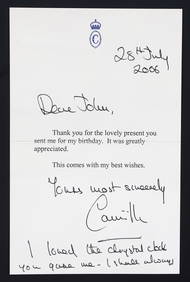 C
28th July
2006
Dear John,
Thank you for the lovely present you
sent me for my birthday. It was greatly
appreciated.
This comes with my best wishes.
Yours most sincerely
Camilla
I loved the chrystal clock
you gave me - I shall always